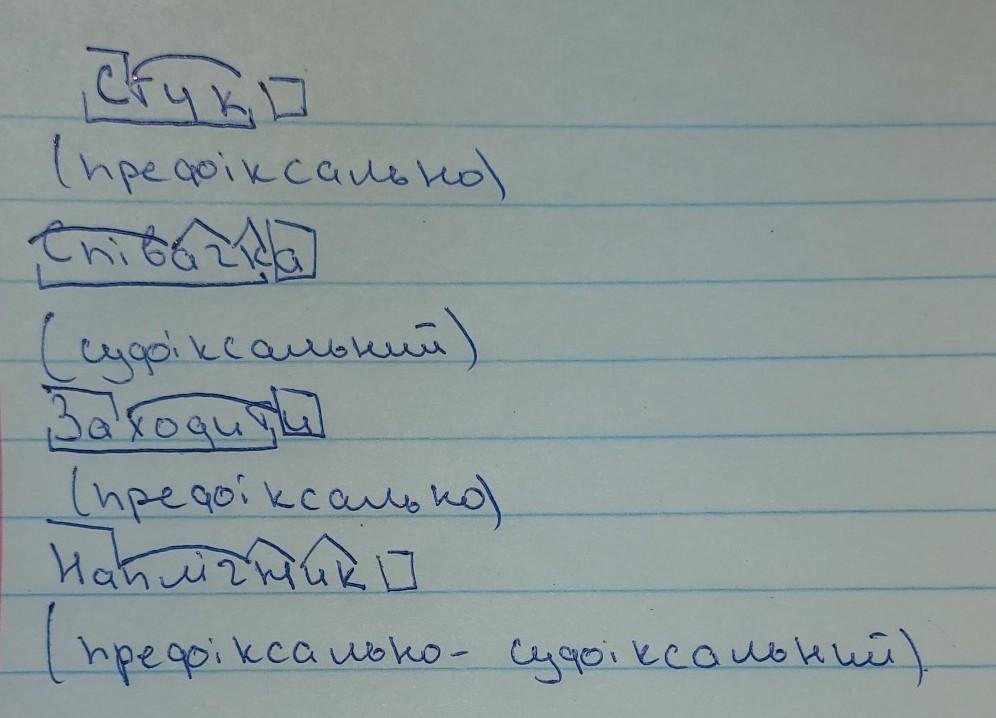 Стук
(префіксально)
Співачка
(суфіксальний)
Заходити
(префіксально)
Наплічник
(префіксально- суфіксальний)